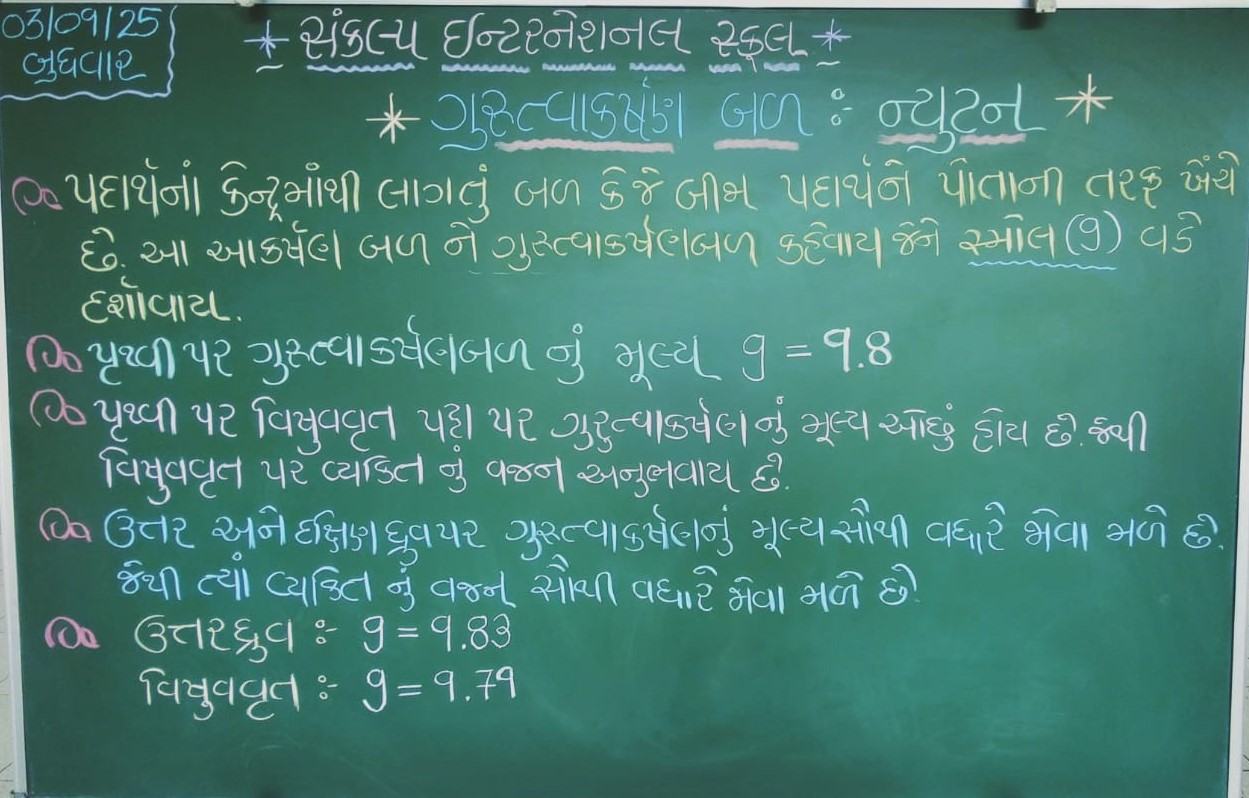 03/09/25
બુધવાર
સંકલ્પ ઈન્ટરનેશનલ સ્કૂલ
ગુરુત્વાકર્ષણ બળ :- ન્યુટન
પદાર્થનાં કેન્દ્રમાંથી લાગતું બળ કે જે બીજા પદાર્થને પોતાની તરફ ખેંચે
છે. આ આકર્ષણ બળ ને ગુરુત્વાકર્ષણબળ કહેવાય જેને સ્મોલ (g) વડે
દર્શાવાય.
પૃથ્વી પર ગુરુત્વાકર્ષણબળ નું મૂલ્ય g = 9.8
પૃથ્વી પર વિષુવવૃત પટ્ટા પર ગુરુત્વાકર્ષણનું મૂલ્ય ઓછું હોય છે. જેથી
વિષુવવૃત પર વ્યકિત નું વજન અનુભવાય છે.
ઉત્તર અને દક્ષિણ ધ્રુવ પર ગુરુત્વાકર્ષણનું મૂલ્ય સૌથી વધારે જોવા મળે છે.
જેથી ત્યાં વ્યકિત નું વજન સૌથી વધારે જોવા મળે છે.
ઉત્તરધ્રુવ :- g = 9.83
વિષુવવૃત :- g = 9.79